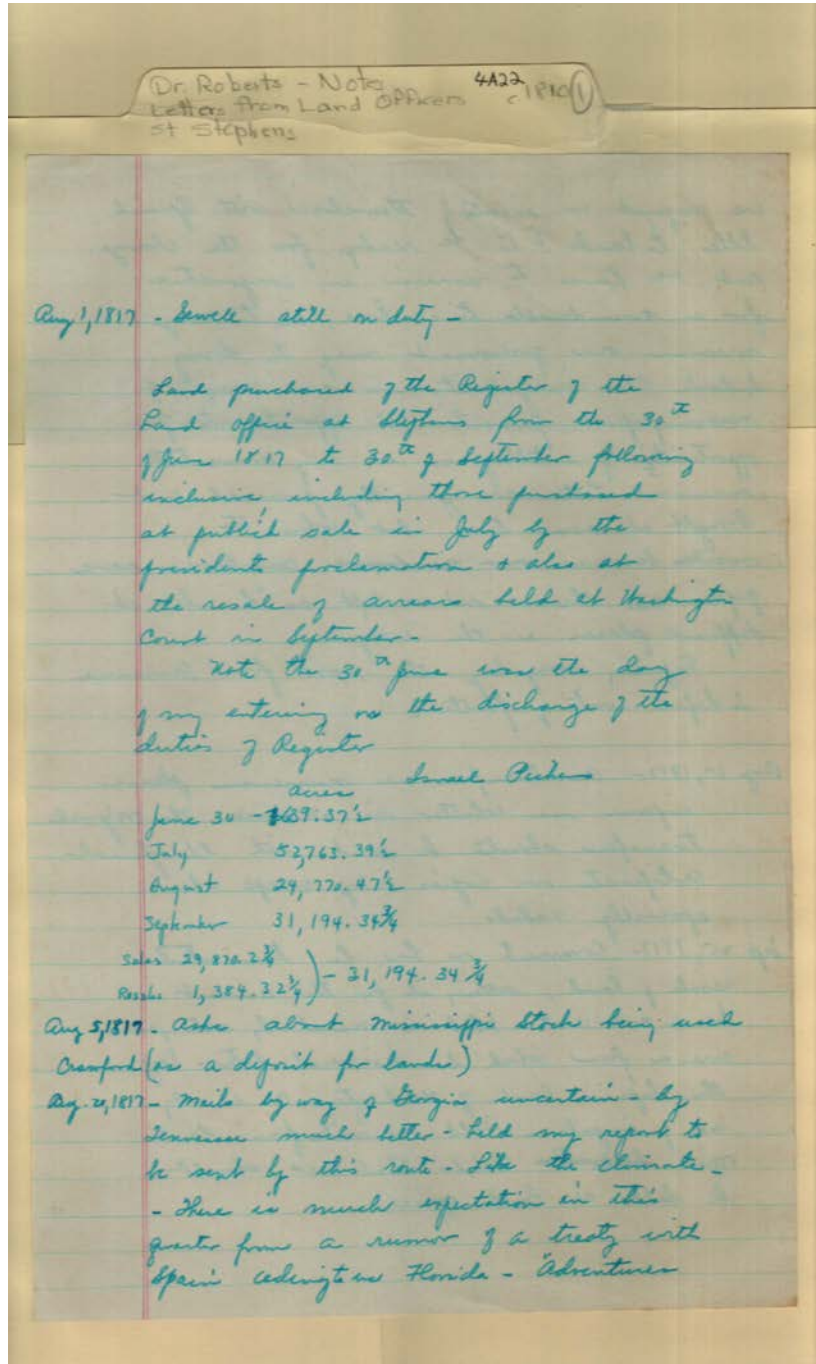 Dr. Roberts - Notes 4A22
Letters from Land Officers c. 1810 (1)
St Stephens
Aug 1, 1817 - Sewell still on duty -
Land purchased of the Register of the
Land office at Stephens from the 30th
of June 1817 to 30th of September following
inclusive, including those purchased
at public sale in July by the
presidents proclamation & also at
the resale of arrears held at Washington
Court in September -
Note the 30th June was the day
of my entering on the discharge of the
duties of Register
acres Israel Pickens
June 30 - 1639.37½
July 52,763.39½
August 24,770.47½
September 31,194.34¾
Sales 29,810.2¾
Resales 1,384.32¾ ) - 31,194.34¾
Aug 5, 1817 - asks about Mississippi Stock being used
Crawford (as a deposit for lands)
Aug. 20, 1817 - Mails by way of Georgia uncertain - by
Tennessee much better - held my report to
be sent by this route - Like the climate -
- There is much expectation in this
quarter from a rumor of a treaty with
Spain ceding to us Florida - "Adventurers